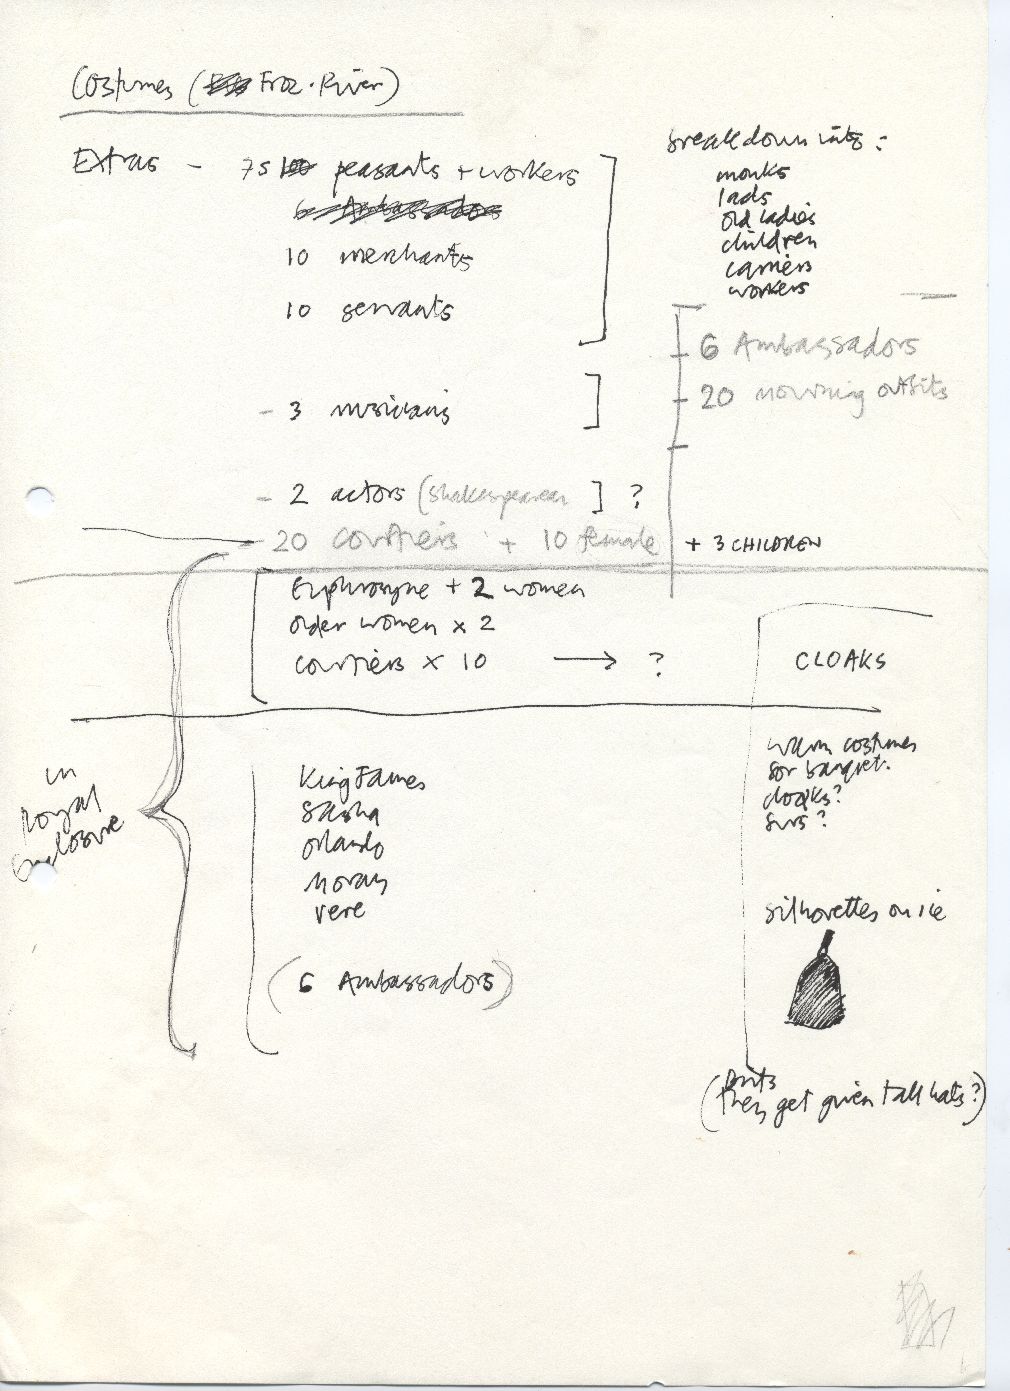 Costumes (Froz. River)
Extras - 75 peasants + workers
6 Ambassadors
10 merchants
10 servants
breakdown into:
monks
lads
old ladies
children
carriers
workers
6 Ambassadors
20 mourning outfits
- 3 musicians
- 2 actors (Shakespearean ] ?
- 20 courtiers + 10 female + 3 CHILDREN
Euphrosyne + 2 women
older women x 2
courtiers x 10 → ?
CLOAKS
in
Royal
Enclosure
King James
Sasha
Orlando
Moray
Vere
(6 Ambassadors)
warm costumes
for banquet.
cloaks?
furs?
silhouettes on ice
(
they get given tall hats?)